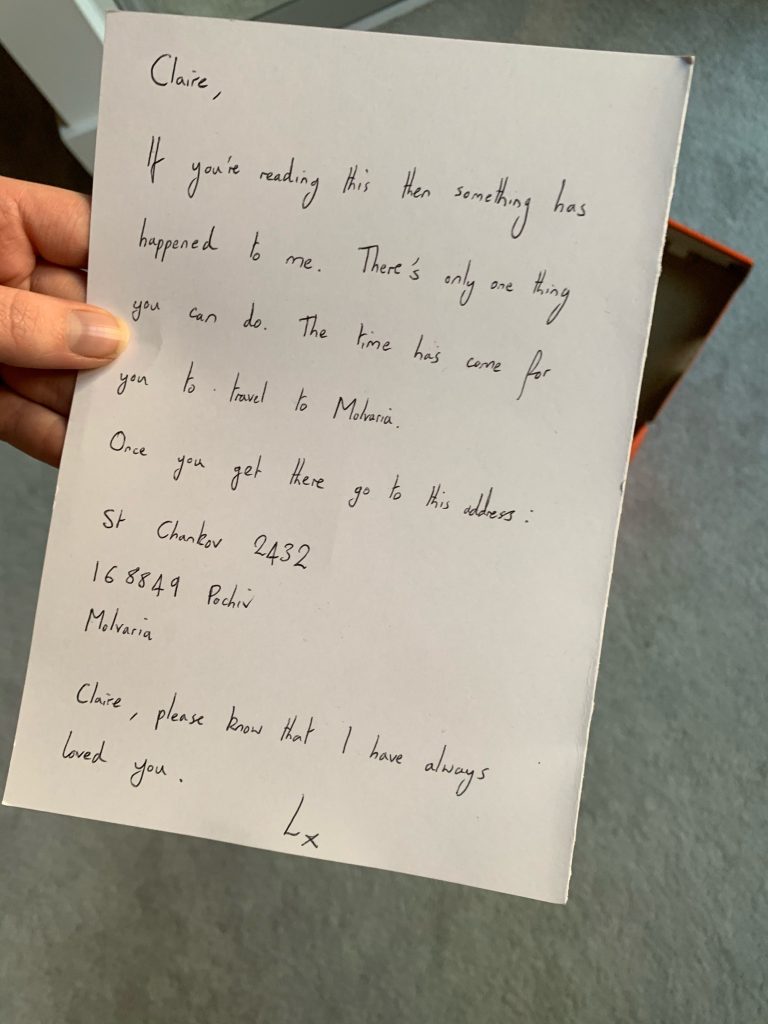 Claire,
If you're reading this then something has
happened to me. There's only one thing
you can do. The time has come for
you to travel to Molvaria.
Once you get there go to this address:
St Chankov 2432
168849 Pochiv
Molvaria
Claire, please know that I have always
loved you.
Lx